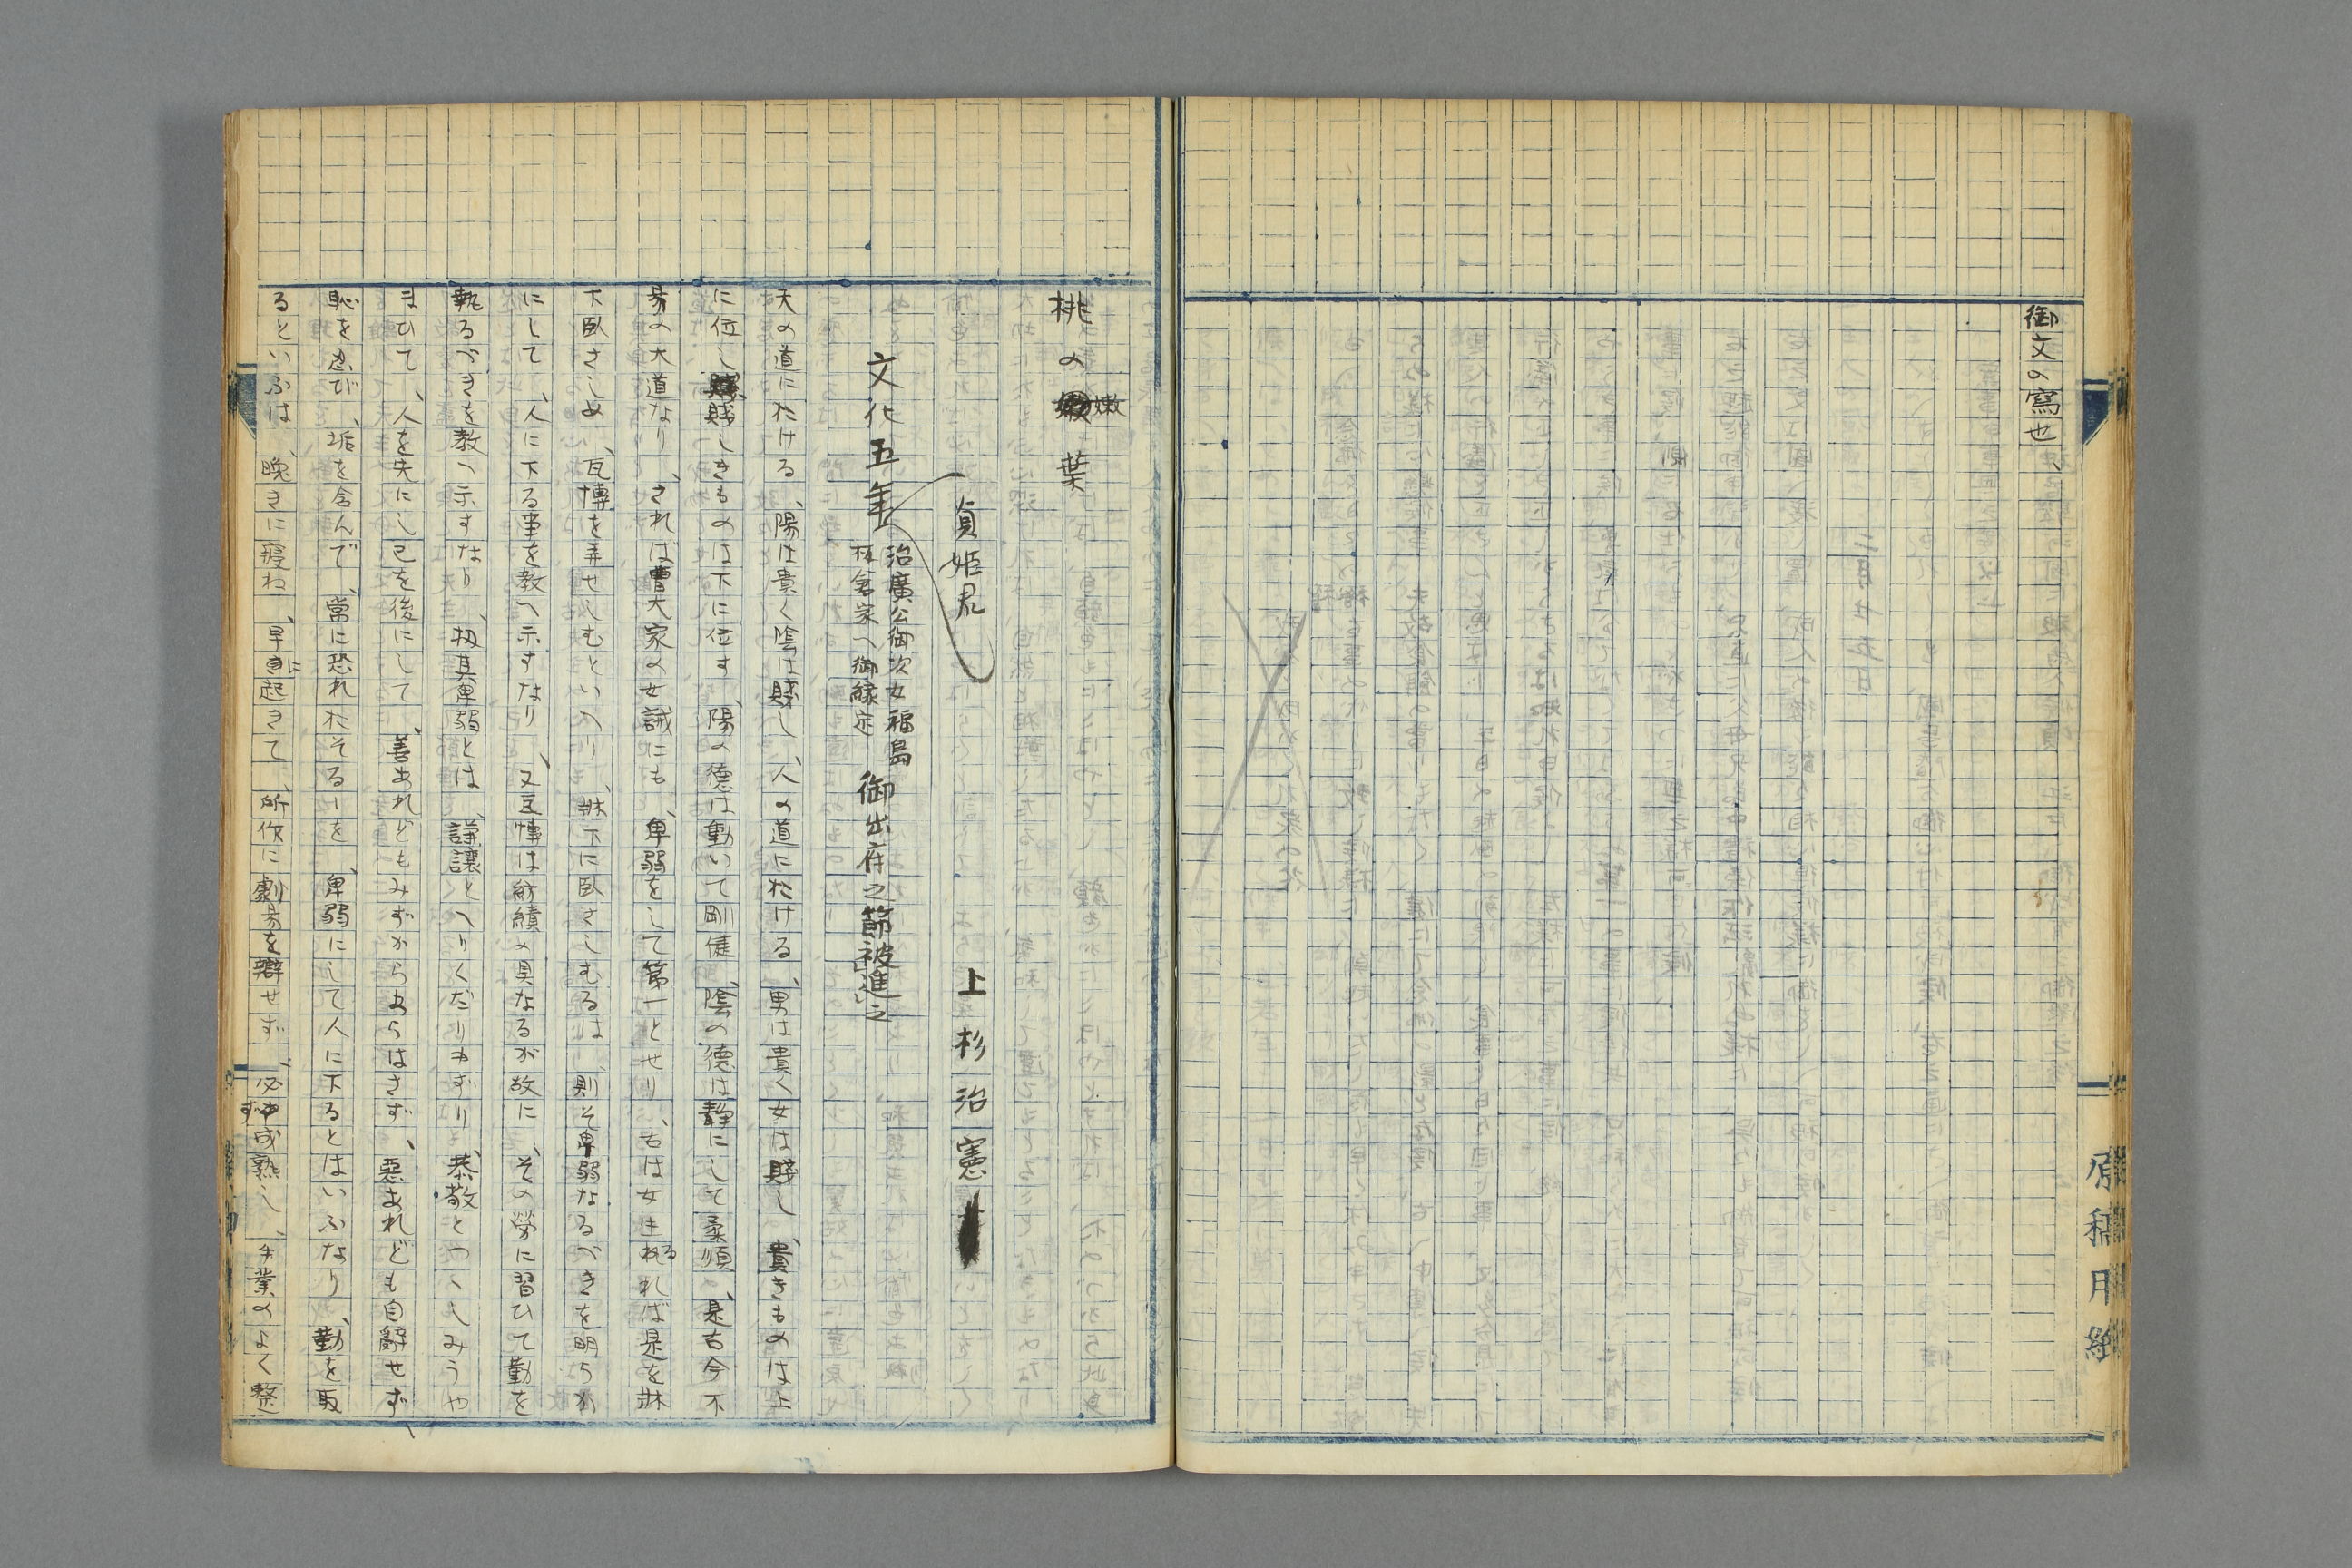 御文の寫也、
原稿用紙
桃の嫩葉
上杉治憲
貞姫君
文化五年
治廣公御次女福島
板倉家へ御縁定
御出府之節被進之
天の道にたける、陽は貴く陰は賤し、人の道にたける、男は貴く女は賤し、貴きものは上
に位し賤しきものは下に位す、陽の德は動いて剛健、陰の德は静にして柔順、是古今不
易の大道なり、されば曹大家の女誡にも、卑弱をして第一とせり、古は女生るれば是を牀
下臥さしめ、瓦塼を弄せしむといへり、牀下に臥さしむるは、則そ卑弱なるべきを明らか
にして、人に下る事を教へ示すなり、又瓦塼は紡績の具なるが故に、その勞に習ひて勤を
執るべきを教へ示すなり、扨其卑弱とは、謙讓とへりくだりゆずり、恭敬とつつしみうや
まひて、人を先にし己を後にして、善あれどもみずからあらはさず、惡あれども自辭せず
恥を忍び、垢を含んで、常に恐れたそるーを、卑弱にして人に下るとはいふなり、勤を取
るといふは、晩きに寝ね、早に起きて、所作に劇易を辭せず、必ず成熟し、手業のよく整